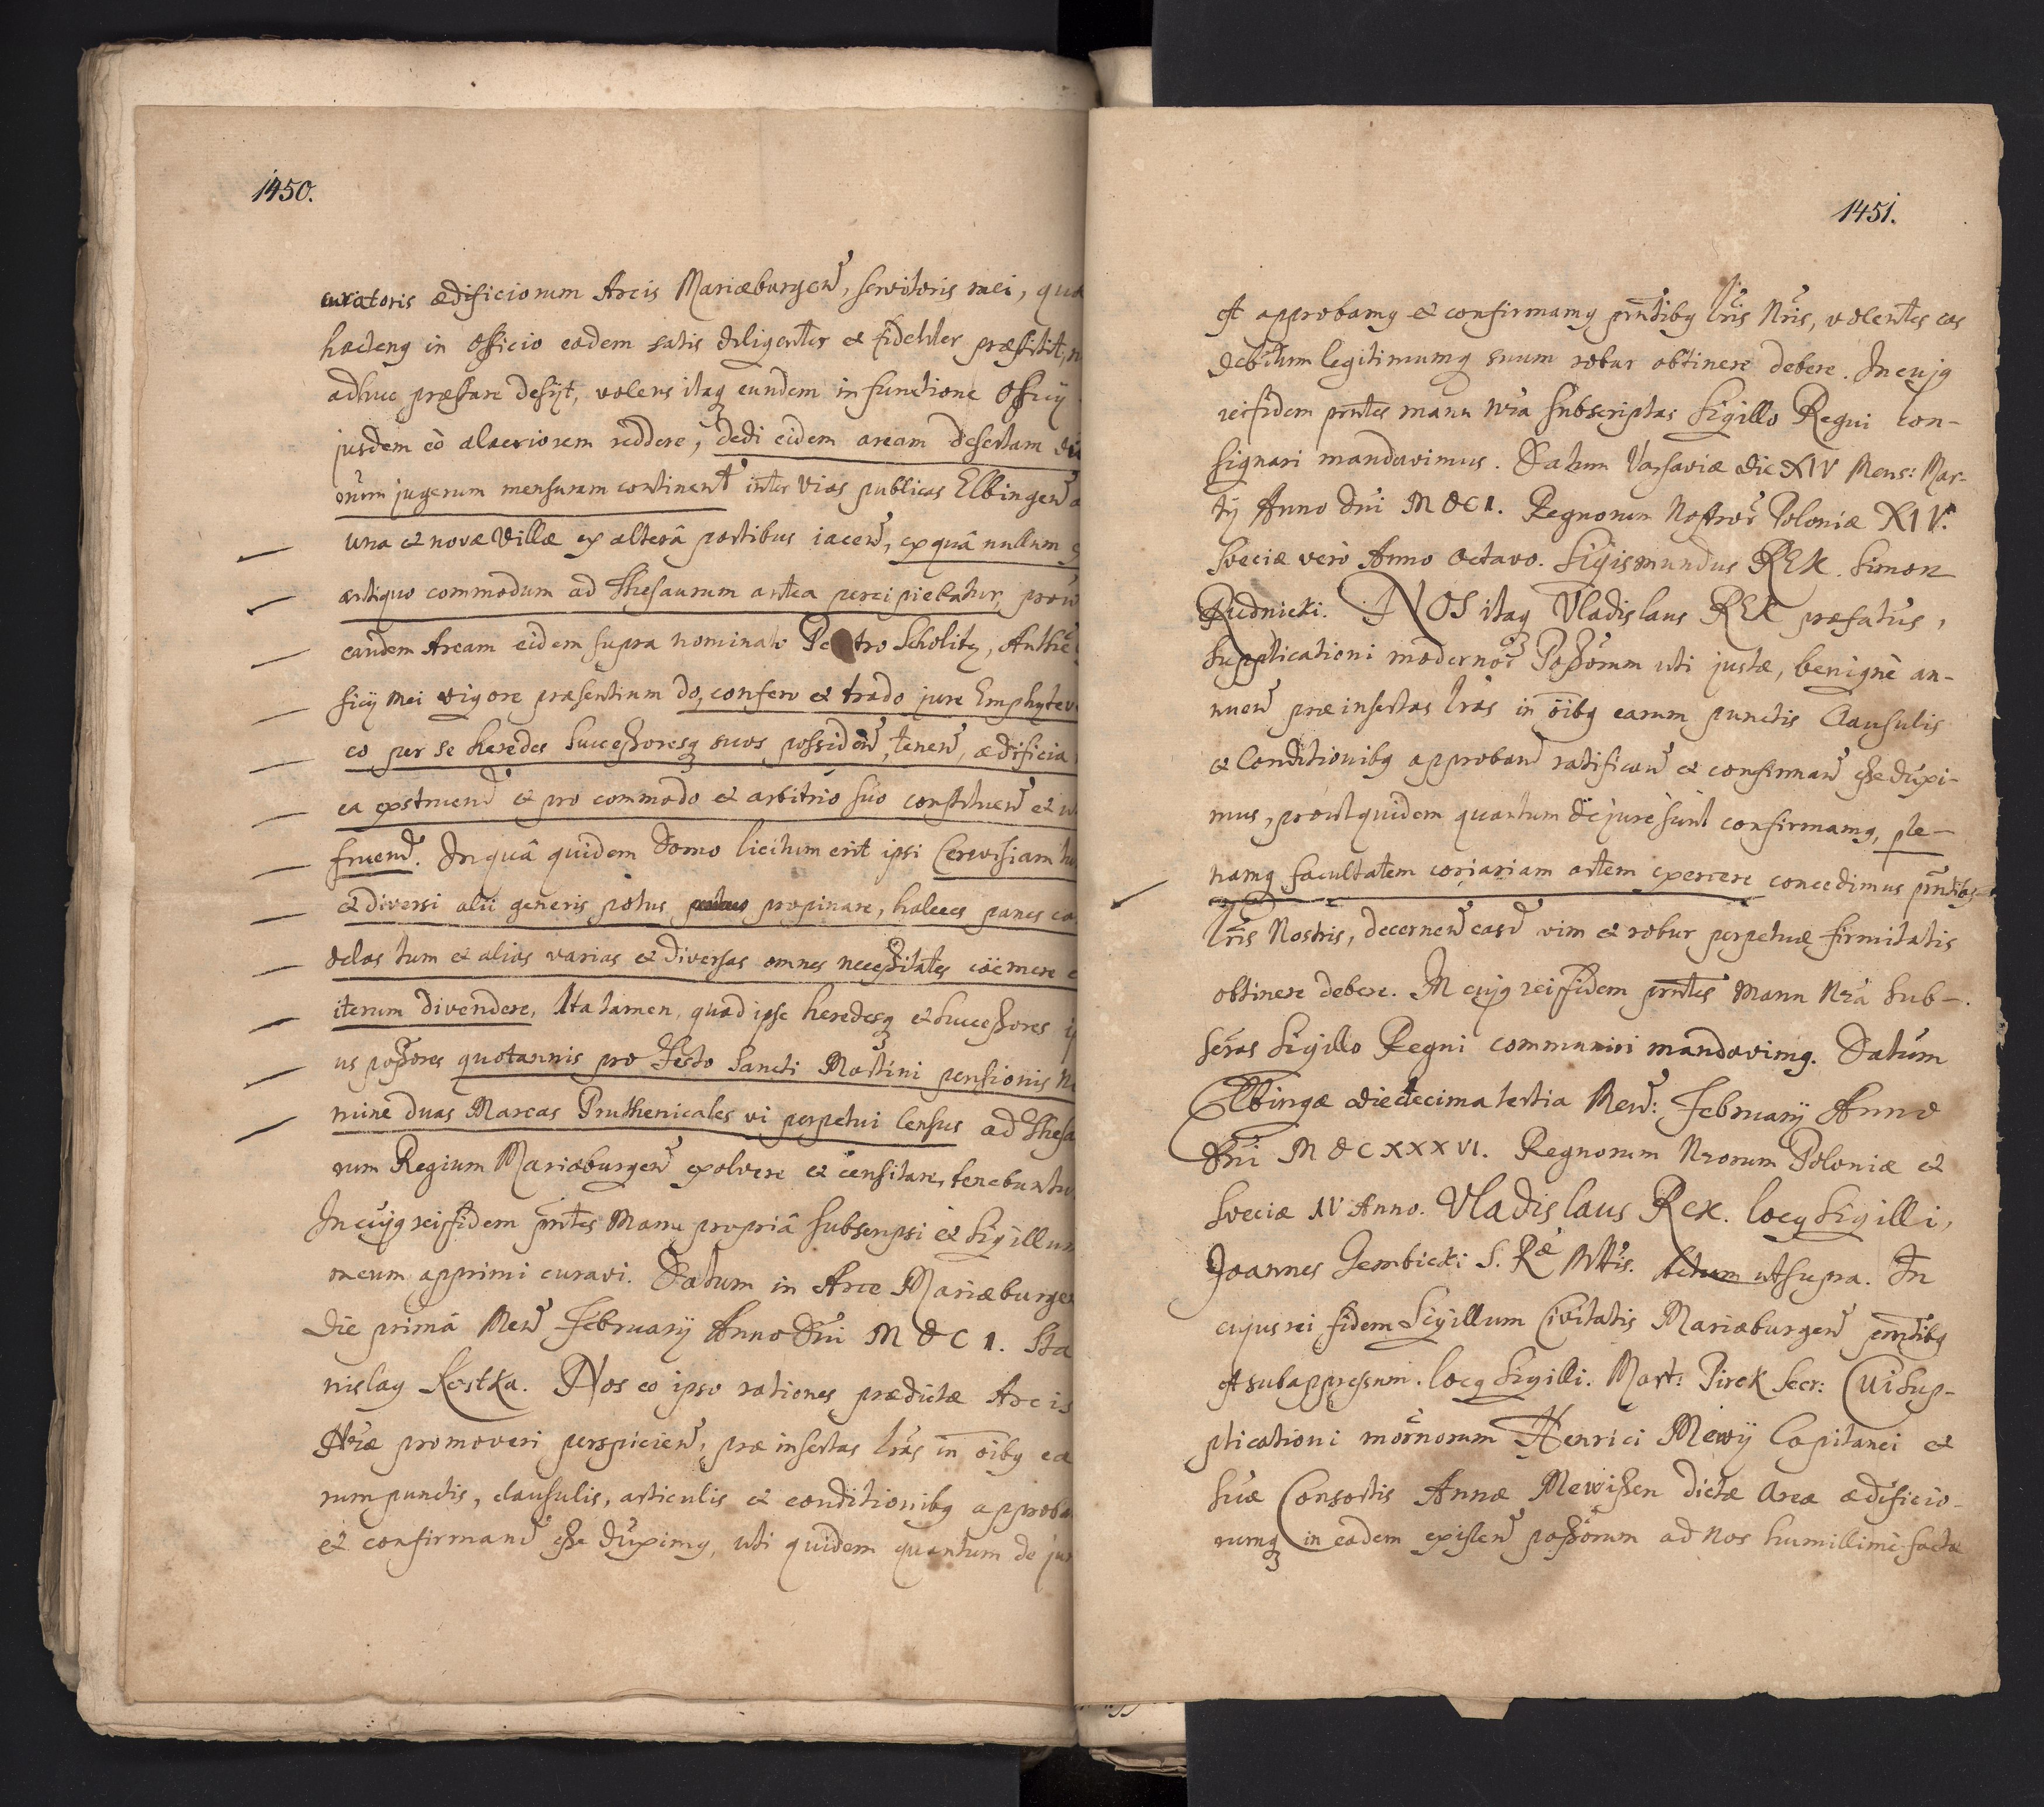 1450.
curatoris ædificiorum Arcis Mariæburgen̄, servitoris mei, qua
hacteng in officio eodem satis diligenter et fideliter præstitit,
adhuc præstare desijt, volens itaq eundem in functione Officij
jusdem eò alacriorem reddere, dedi eidem aream desertam
orum jugerum mensuram continent inter vias publicas Elbingen̄
una et novæ Villæ ex alterâ partibus iacen̄, ex quâ nullum
antiquo commodum ad Thesaurum antea percipiebatur, prout
eandem Aream eidem supra nominato Petro Scholitz, Authē
ficij mei vigore præsentium do, confero et trado jure Emphyteu
co per se heredes Successoresq suos possiden̄, tenen̄, ædificia
ea exstruend̄ et pro commodo et arbitrio suo constituen̄ et
fruend̄. In quâ quidem Domo licitum erit ipsi Cerevisiam
et diversi alii generis potus propinare, haleces panes
delas tum et alias varias et diversas omnes necessitates coëmere
iterum divendere, Ita tamen, quod ipse heredesq et Successores
us possores quotannis pro Festo Sancti Martini pensionis
mine duas Marcas Pruthenicales vi perpetui Census ad Thesa
rum Regium Mariæburgen̄ exolvere et censitare, tenebuntu
In cujg rei fidem pn̄tes Manu propriâ subscripsi et Sigillum
meum apprimi curavi. Datum in Arce Mariæburge
die primâ Men̄ February Anno Dn̄i M D C I. Sta
nislag Kostka. Nos eo ipso rationes prædictæ Arcis
Nr̄æ promoveri perspicien̄, præ insertas lr̄as in oībg ea
rum punctis, clausulis, articulis et conditionibg approba
et confirmand̄ esse duximg, uti quidem quantum de jur
1451.
et approbamg et confirmamg pn̄tibg lr̄is Nr̄is, volentes eas
debitum legitimumq suum robur obtinere debere. In cujg
rei fidem pn̄tes manu Nr̄a subscriptas Sigillo Regni con-
signari mandavimus. Datum Varsaviæ die XIV Mens: Mar-
tij Anno Dn̄i M D C I. Regnorum Nostror̄ Poloniæ XIV.
Sveciæ verò Anno octavo. Sigismundus REX. Simon
Rudnicki. NOS itaq Vladislaus REX præfatus,
supplicationi modernor̄ Possorum uti justæ, benignè an-
nuen̄ præ insertas lr̄as in oībg earum punctis Clausulis
et Conditionibg approband̄ ratificand̄ et confirmand̄ esse duxi-
mus, prout quidem quantum de jure sunt confirmamg, ple-
namq facultatem coriariam artem exercere concedimus pn̄tibg
lr̄is Nostris, decernen̄ easd̄ vim et robur perpetuæ firmitatis
obtinere debere. In cujg rei fidem pn̄tes Manu Nr̄a Sub-
scr̄as Sigillo Regni communiri mandavimg. Datum
Elbingæ die decima tertia Men̄: February Anno
Dn̄i M D C X X X VI. Regnorum Nr̄orum Poloniæ et
Sveciæ IV Anno. Vladislaus Rex. locg Sigilli,
Joannes Gembicki S. R.æ Mttis. Actum ut supra. In
cujus rei fidem Sigillum Civitatis Mariæburgen̄ pn̄tibg
et subappressum. locg Sigilli. Mart: Pirek Secr: Cui Sup-
plicationi mōrnorum Henrici Mewij Capitanei et
Suæ Consortis Annæ Mewissen dictæ Areæ ædificio-
rumq in eadem existen̄ possorum ad Nos humillimè factæ